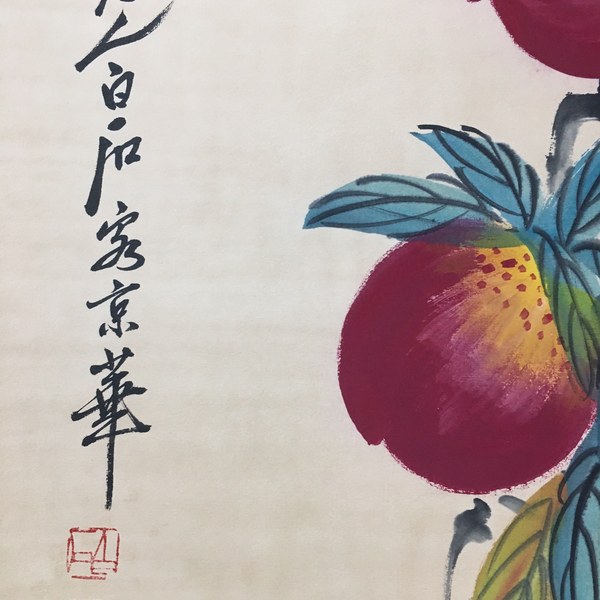 人白石客京華